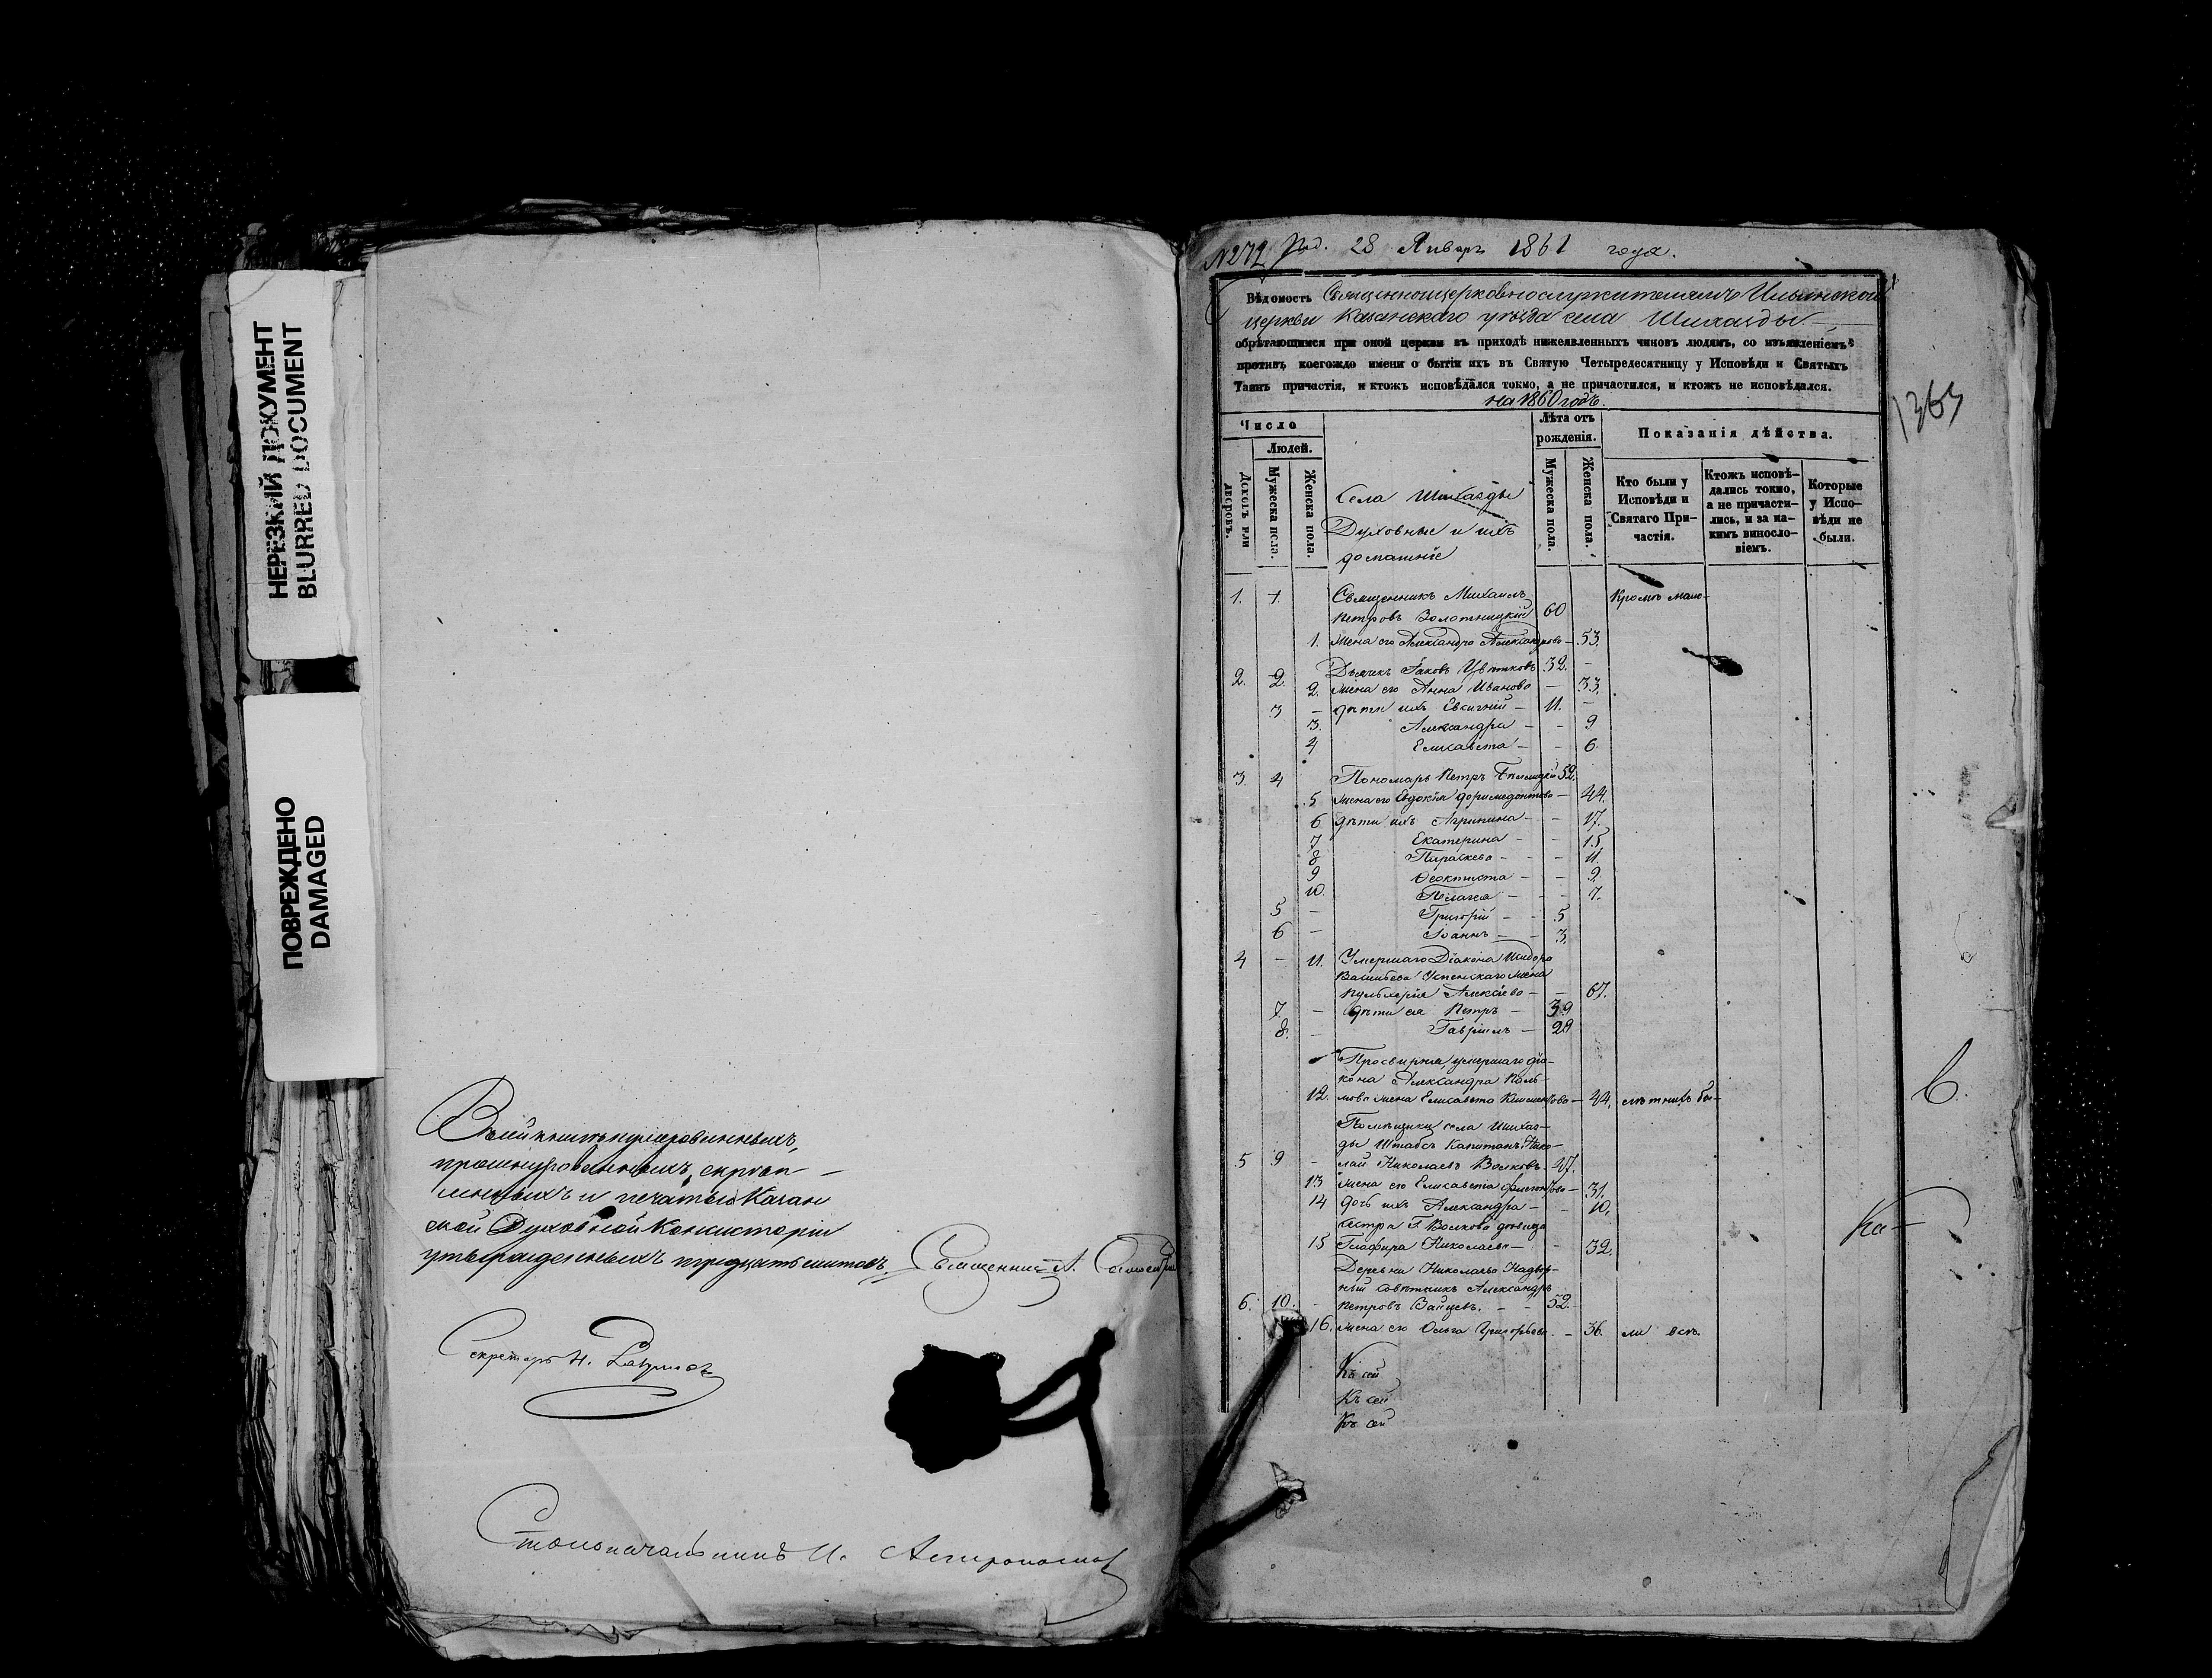 НЕРЕЗКИЙ ДОКУМЕНТ
BLURRED DOCUMENT
ПОВРЕЖДЕНО
DAMAGED
прошнурованныхъ, скрѣп-
ленныхъ и печатью Казан
ской Духовной Консисторіи
утвержденныхъ тридцать листовъ. Священникъ А.
Секретарь Н.
Столоначальникъ И.
28 Январь 1861 года.
Вѣдомость Священноцерковнослужителямъ Ильинской
церкви Казанскаго уѣзда села Шигазды
обрѣтающимся при оной церкви въ приходѣ нижеявленныхъ чиновъ людямъ, со изъявленіемъ
противъ коегождо имени о бытіи ихъ въ Святую Четыредесятницу у Исповѣди и Святыхъ
Таинъ причастія, и ктожъ исповѣдался токмо, а не причастился, и ктожъ не исповѣдался.
на 1860 годъ.
1363
Число
Людей.
Домовъ или дворовъ.
Мужеска пола.
Женска пола.
Лѣта отъ рожденія.
Мужеска пола.
Женска пола.
Показанія дѣйства.
Кто были у Исповѣди и Святаго Причастія.
Ктожъ исповѣ-
дались токмо,
а не причасти-
лись, и за ка-
кимъ винословіемъ.
Которые
у Испо-
вѣди не
были.
Села Шигазды
Духовные и ихъ
домашніе
1. 1. Священникъ Михаилъ Кромѣ мало-
Петровъ Золотницкій 60
1. Жена его Александра Александрова – 53.
2. 2. Дьячекъ Іаковъ Цвѣтковъ 32. –
2. Жена его Анна Иванова – 33.
3 – дѣти ихъ Евгеній – 11. –
3. Александра – – 9
4 Елисавета – – 6.
3. 4 Пономарь Петръ 52.
5 Жена его Евдокія Доримедонтова – 44.
6 дѣти ихъ Агрипина – – 17.
7 Екатерина – – 15
8 Параскева – – 11.
9 Феоктиста – – 9.
10. Пелагея – – 7.
5 – Григорій – – 5
6 – Іоаннъ – – 3.
4 – 11. Умершаго Діакона Исидора
Васильева Успенскаго жена
Пульхерія Алексѣева – – 67.
7. – дѣти ея Петръ – 39
8. – Гавріилъ – 29
Просвирня, умершаго діа-
кона Александра Паль-
12. мова жена Елисавета Климентова – 44. лѣтнихъ бы-
Помѣщики села Шигаз-
ды Штабсъ Капитанъ Нико-
5 9 – лай Николаевъ Волковъ 47.
13 Жена его Елисавета – 31.
14 дочь ихъ Александра – – 10.
Сестра Г. Волкова дѣвица
15 Глафира Николаева – – 32.
Деревни Николаевы Надвор-
ный Совѣтникъ Александръ
6. 10. – Петровъ Зайцевъ. – – 52.
16. Жена его Ольга Григорьева. – 36. ли всѣ.
Къ сей
Къ сей
Къ сей
Ка-